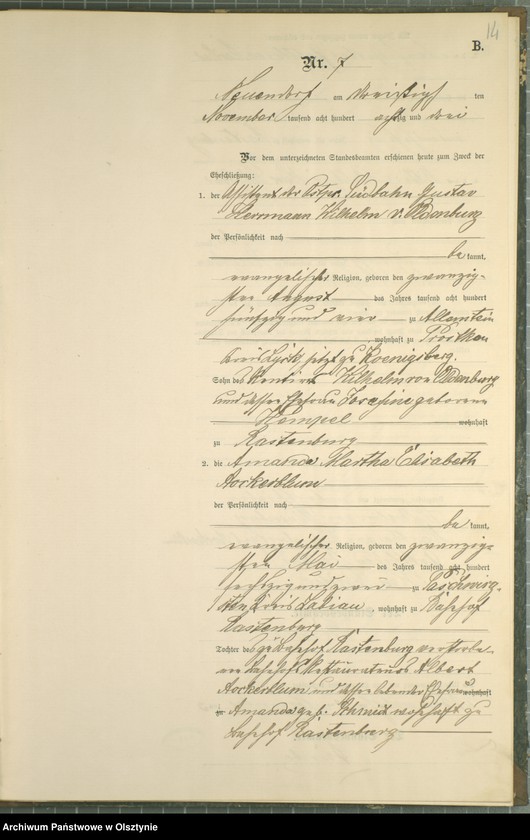 14
B.
Nr. 7
Neuendorf am dreißigsten
November tausend acht hundert achtzig und drei
Vor dem unterzeichneten Standesbeamten erschienen heute zum Zweck der
Eheschließung:
1. der Assistent der Ostpr. Südbahn Gustav
Herrmann Wilhelm v. Oldenburg
der Persönlichkeit nach
be kannt,
evangelischer Religion, geboren den zwanzig-
sten August des Jahres tausend acht hundert
fünfzig und vier zu Allenstein
wohnhaft zu Prostken
Kreis Lyck, jetzt zu Koenigsberg.
Sohn des Rentier Wilhelm von Oldenburg
und dessen Ehefrau Josefine geborene
Hempel wohnhaft
zu Rastenburg
2. die Amanda Martha Elisabeth
Ackerblum
der Persönlichkeit nach
be kannt,
evangelischer Religion, geboren den zwanzig-
sten Mai des Jahres tausend acht hundert
sechzig und zwei zu
Kreis Labiau, wohnhaft zu Bahnhof
Rastenburg
Tochter des zu Bahnhof Rastenburg verstorbe-
nen Bahnhofs Restaurateurs Albert
Ackerblum und dessen lebender Ehefrau wohnhaft
zu Amanda geb. Schmidt wohnhaft zu
Bahnhof Rastenburg
Archiwum Państwowe w Olsztynie